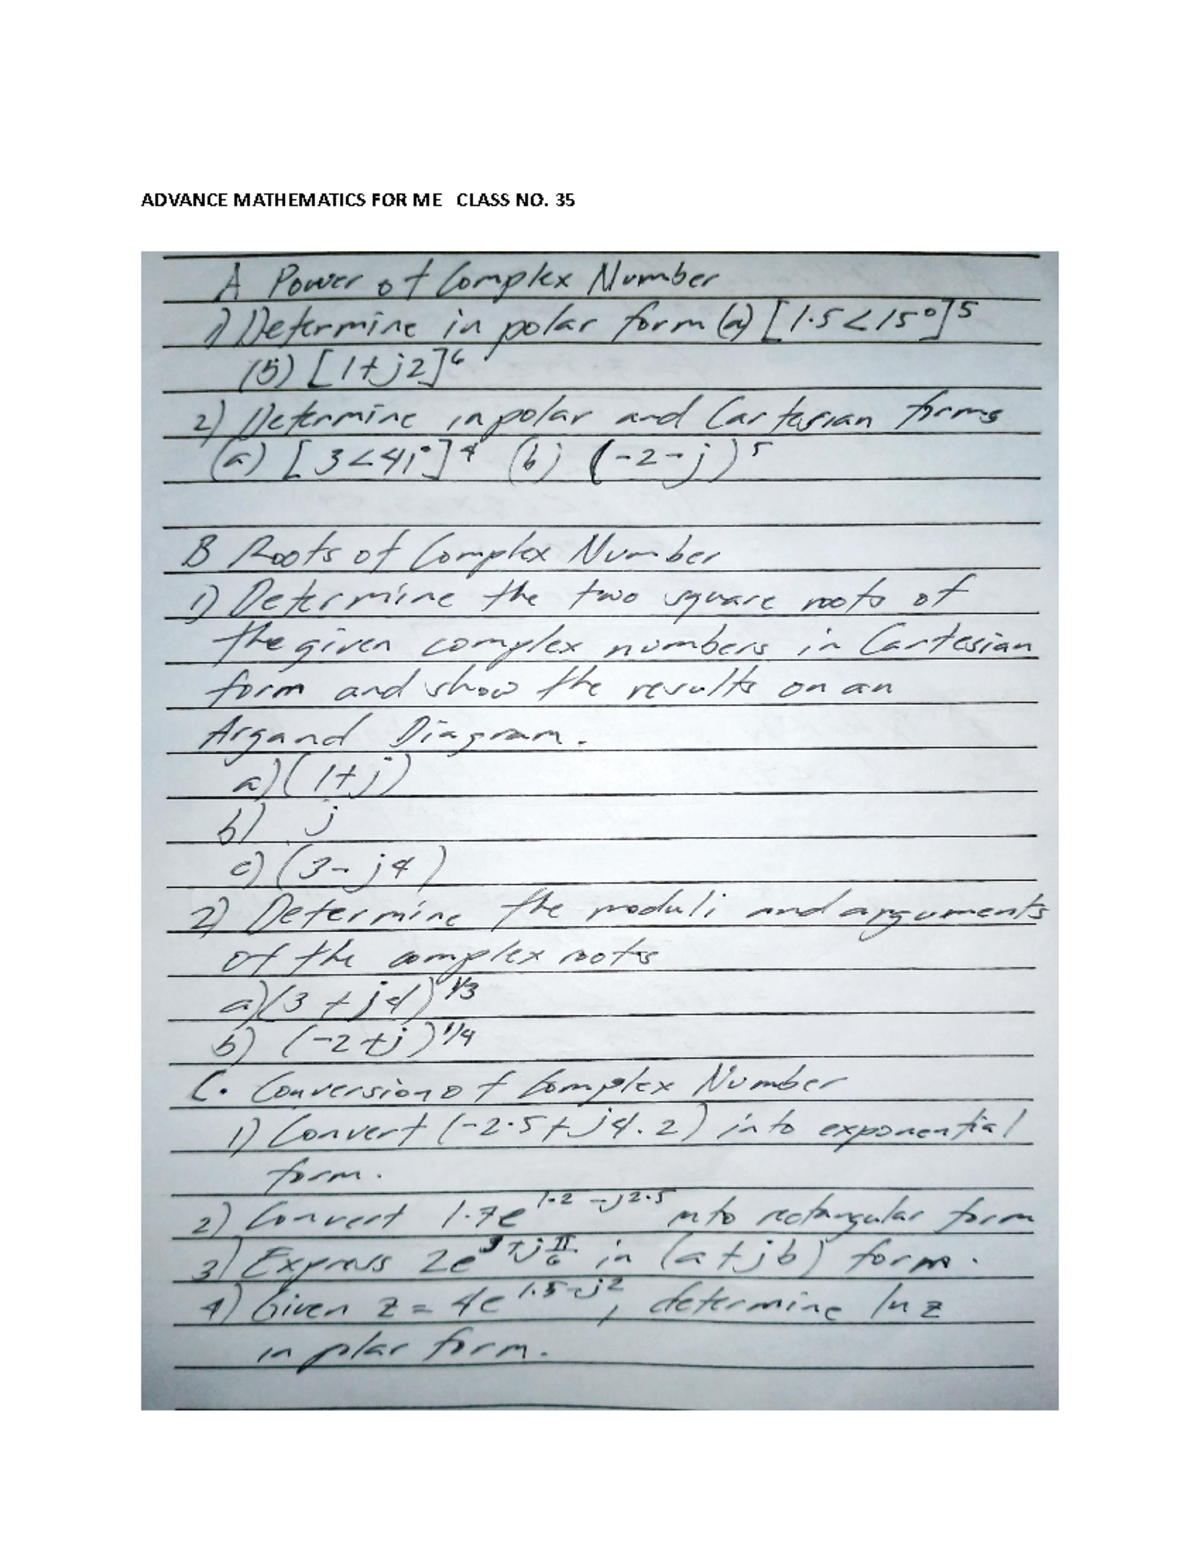 ADVANCE MATHEMATICS FOR ME CLASS NO. 35
A Power of Complex Number
1) Determine in polar form (a) [1.5<15°]5
(b) [1+j2]6
2) Determine in polar and Cartesian forms
(a) [3<41°]4 (b) (-2-j)5
B Roots of Complex Number
1) Determine the two square roots of
the given complex numbers in Cartesian
form and show the results on an
Argand Diagram.
a) (1+j)
b) j
c) (3-j4)
2) Determine the moduli and arguments
of the complex roots
a) (3+j4)1/3
b) (-2+j)1/4
C. Conversion of Complex Number
1) Convert (-2.5+j4.2) into exponential
form.
2) Convert 1.7e1.2-j2.5 into rectangular form
3) Express 2e3+jπ/6 in (a+jb) form.
4) Given z = 4e1.5-j2, determine ln z
in plar form.